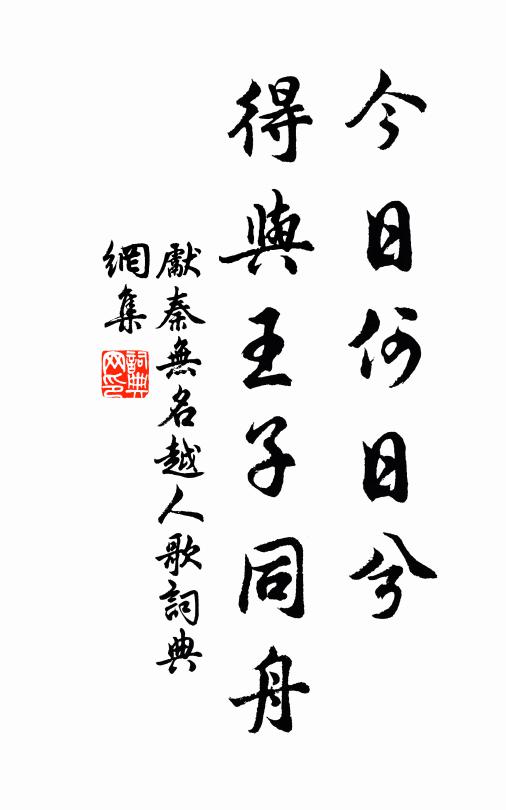 今日何日兮
得與王子同舟
獻秦無名越人歌詞典
網集
詞典
网印